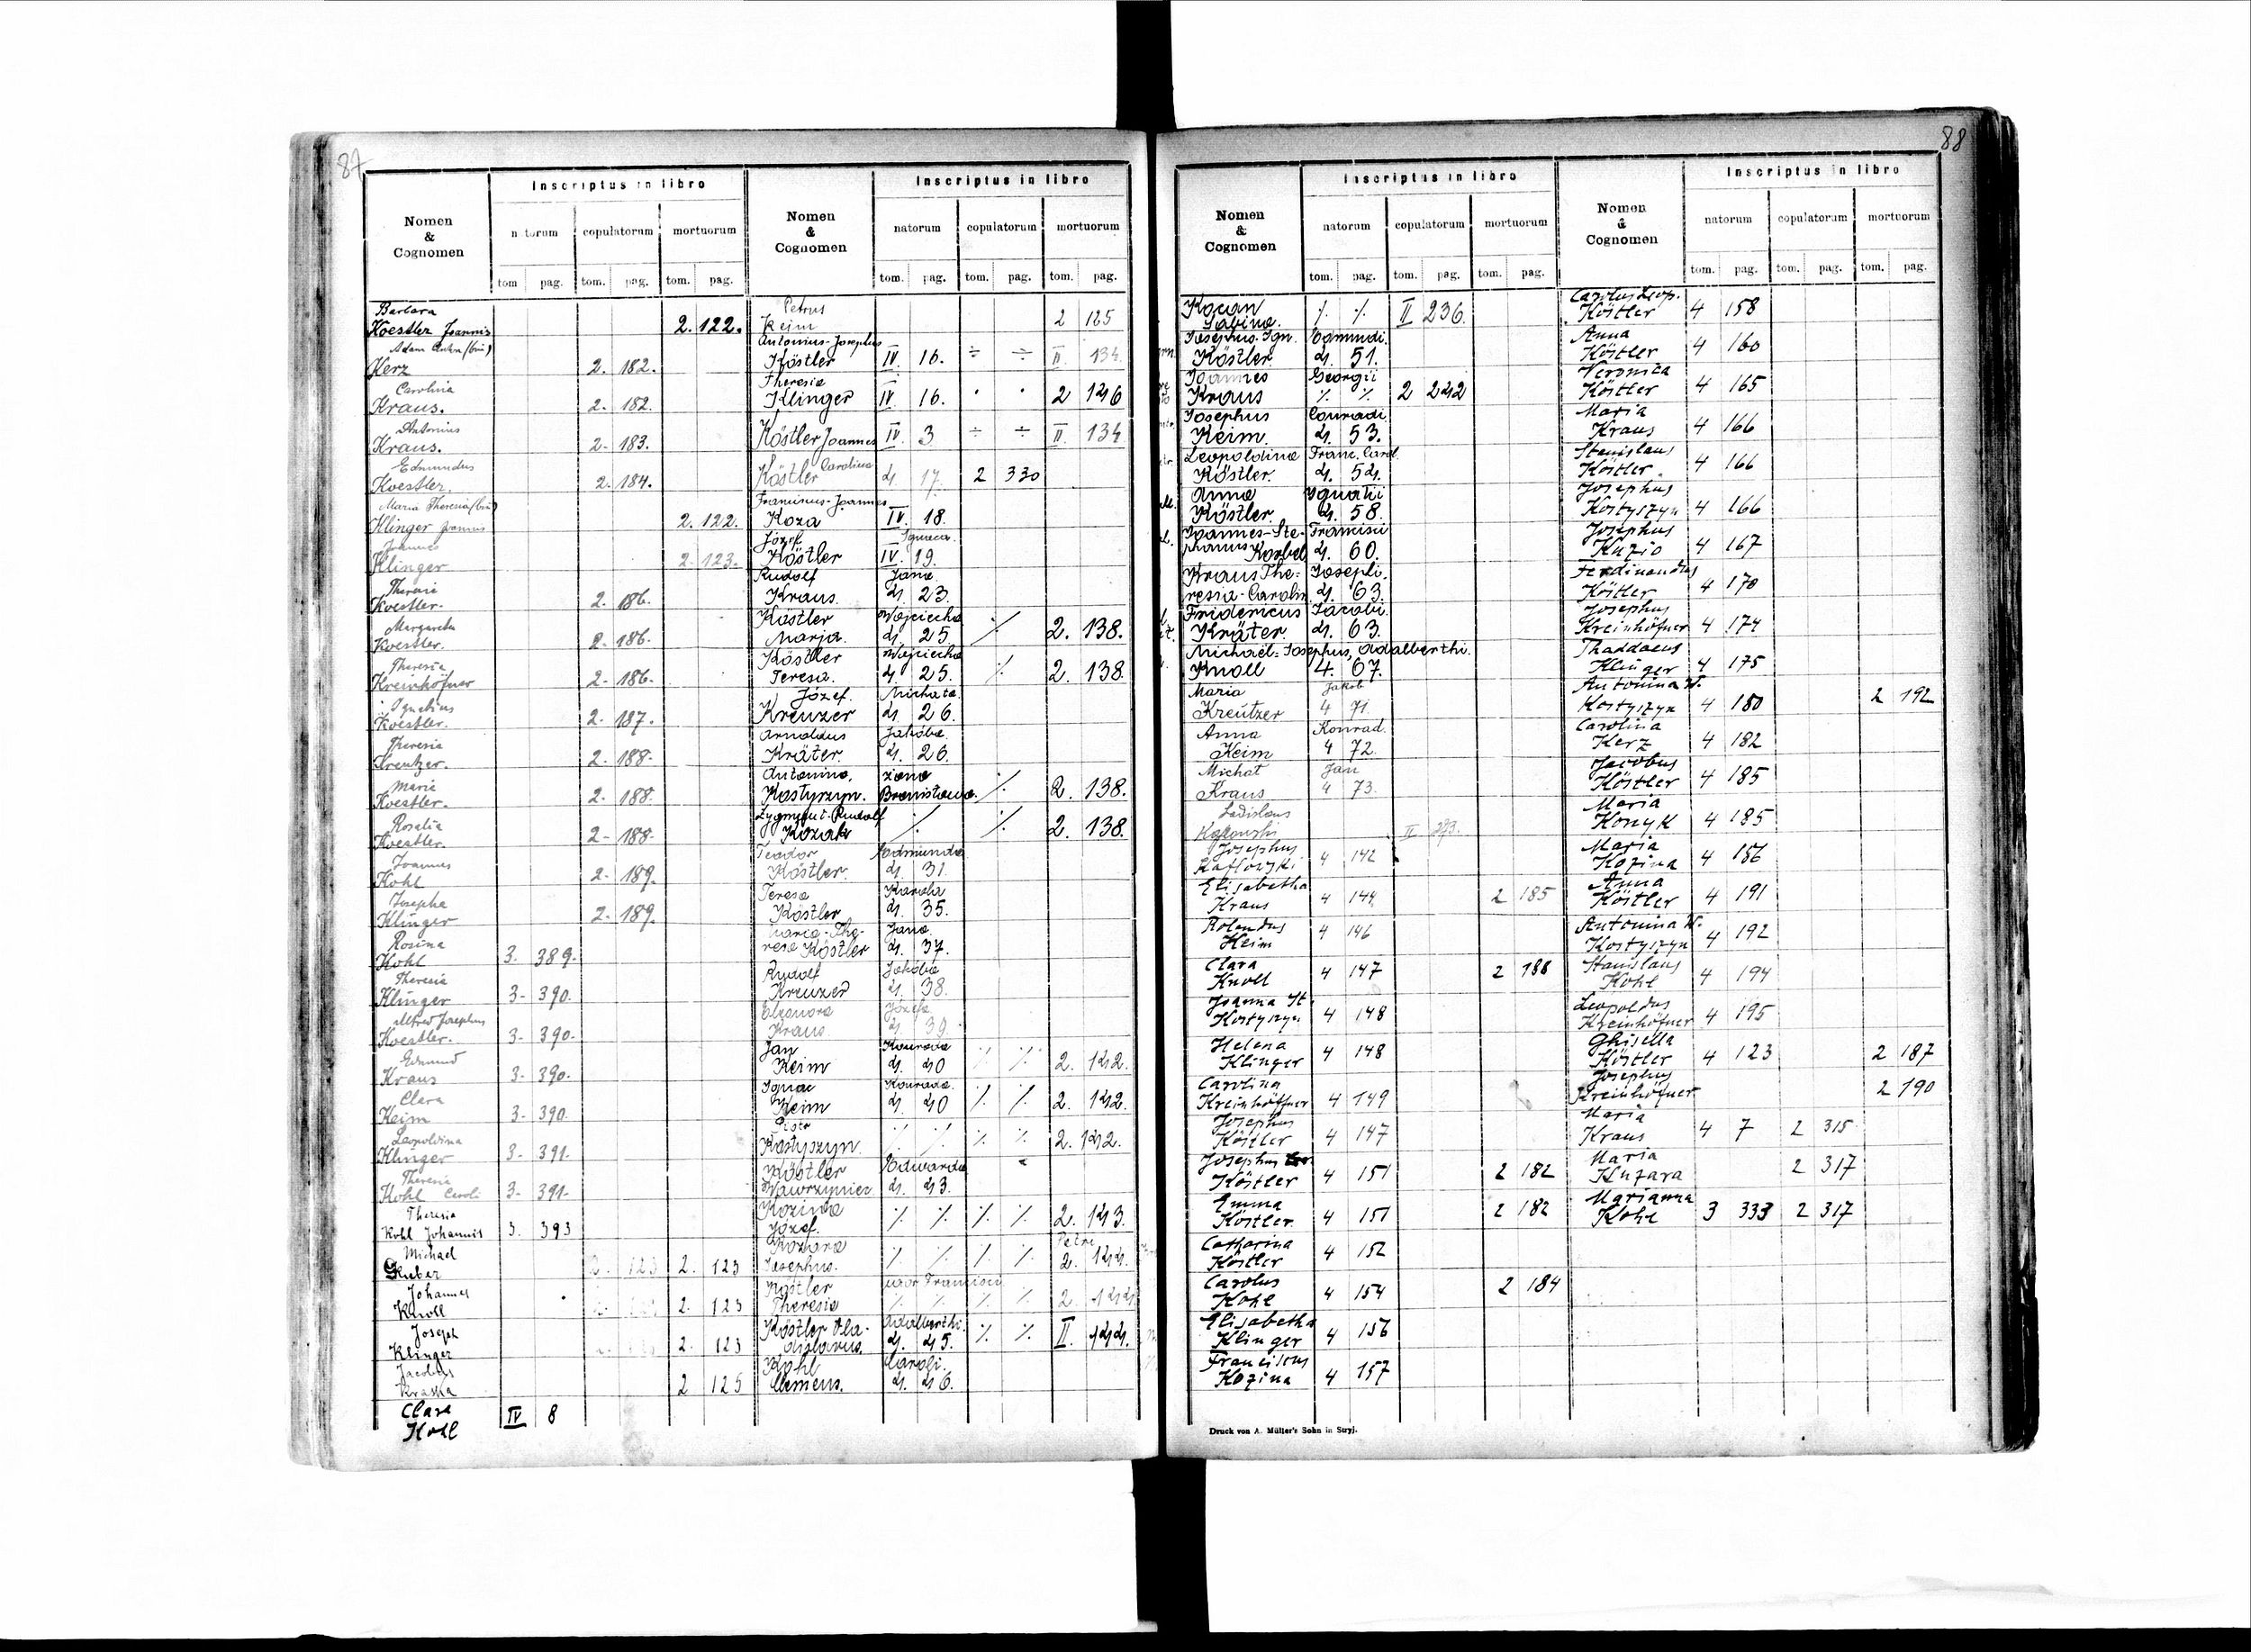 87
Nomen & Cognomen
Inscriptus in libro
natorum copulatorum mortuorum
tom pag. tom. pag. tom. pag.
Barbara
Koestler Joannis 2. 122.
Adam Anton (bini)
Kerz 2. 182.
Carolina
Kraus. 2. 182.
Antonius
Kraus. 2. 183.
Edmundus
Koestler. 2. 184.
Maria Theresia (bini)
Klinger Joannis 2. 122.
Joannes
Klinger 2. 123.
Theresia
Koestler. 2. 186.
Margaretha
Koestler. 2. 186.
Theresia
Kreinhöfner 2. 186.
Ignatius
Koestler. 2. 187.
Theresia
Kreutzer. 2. 188.
Maria
Koestler. 2. 188.
Rosalia
Koestler. 2. 188.
Joannes
Kohl 2. 189.
Josepha
Klinger 2. 189.
Rosina
Kohl 3. 389.
Theresia
Klinger 3. 390.
Alfred Josephus
Koestler. 3. 390.
Edmund
Kraus 3. 390.
Clara
Keim 3. 390.
Leopoldina
Klinger 3. 391.
Theresia
Kohl Caroli 3. 391.
Theresia
Kohl Johannis 3. 393
Michael
Kuber 2. 123 2. 123
Johannes
Knoll 2. 123
Joseph
Klinger 2. 123
Jacobus
Kraska 2 125
Clara
Kohl IV 8
Nomen & Cognomen
Inscriptus in libro
natorum copulatorum mortuorum
tom. pag. tom. pag. tom. pag.
Petrus
Keim 2 125
Antonius-Josephus
Köstler IV 16. ÷ ÷ II. 134.
Theresia
Klinger IV 16. 2 146
Köstler Joannes IV. 3 ÷ ÷ II. 134
Köstler Carolina 4. 17. 2 330
Franciscus-Joannes
Koza IV. 18.
Józef Ignaca.
Köstler IV. 19.
Rudolf Jana.
Kraus. 4. 23.
Köstler Wojciecha
Marja. 4. 25. ⁒ 2. 138.
Köstler Wojciecha
Teresa. 4. 25. ⁒ 2. 138.
Józef. Michała.
Kreuzer 4. 26.
Arnoldus Jakóba.
Kräter. 4. 26.
Antonina, żona
Kostyszyn. Bronisława. ⁒ 2. 138.
Zygmunt-Rudolf
Kozak ⁒ ⁒ 2. 138.
Teodor Edmunda
Köstler. 4. 31.
Teresa Karola
Köstler 4. 35.
Maria-The- Jana.
resa Köstler 4. 37.
Rudolf Jakóba
Kreuzer 4. 38.
Eleonora Józefa
Kraus 4. 39.
Jan Konrada
Keim 4. 40 ⁒ ⁒ 2. 142.
Ignac Konrada.
Keim 4. 40 ⁒ ⁒ 2. 142.
Piotr
Kostyszyn ⁒ ⁒ ⁒ ⁒ 2. 142.
Köstler Edwarda
Wawrzyniec 4. 43.
Kozina
Józef. ⁒ ⁒ ⁒ ⁒ 2. 143.
Petri
Josephus. ⁒ ⁒ ⁒ ⁒ 2. 144.
Köstler uxor Francisci
Theresia ⁒ ⁒ ⁒ ⁒ 2. 144
Köstler Vla- Adalberthi.
dislavus. 4. 45. ⁒ ⁒ II. 144.
Kohl Caroli.
Clemens. 4. 46.
88
Nomen & Cognomen
Inscriptus in libro
natorum copulatorum mortuorum
tom. pag. tom. pag. tom. pag.
Kocan
Sabina. ⁒ ⁒ II 236.
Josephus. Ign. Edmundi.
Köstler 4. 51.
Joannes Georgii
Kraus ⁒ ⁒ 2 242
Josephus Conradi
Keim. 4. 53.
Leopoldina Franc. Carol.
Köstler. 4. 54.
Anna Ignatii
Köstler. 4. 58.
Joannes-Ste- Francisci
phanus 4. 60.
Kraus The- Josephi.
resia-Carolin. 4. 63.
Fridericus Jacobi.
Kräter. 4. 63.
Michaël-Josephus, Adalberthi.
Knoll 4. 67.
Maria Jakob
Kreutzer 4 71
Anna Konrad.
Keim 4 72.
Michał Jan
Kraus 4 73.
Ladislaus
II
Josephus
4 142
Elisabetha
Kraus 4 144 2 185
Rolandus
Keim 4 146
Clara
Knoll 4 147 2 188
Joanna St.
Kostyszyn 4 148
Helena
Klinger 4 148
Carolina
Kreinhöffner 4 149
Josephus
Köstler 4 147
Josephus
Köstler 4 151 2 182
Emma
Köstler. 4 151 2 182
Catharina
Köstler 4 152
Carolus
Kohl 4 154 2 184
Elisabetha
Klinger 4 156
Franciscus
Kozina 4 157
Druck von A. Müller's Sohn in Stryj.
Nomen & Cognomen
Inscriptus in libro
natorum copulatorum mortuorum
tom. pag. tom. pag. tom. pag.
Carolus Leop.
Köstler 4 158
Anna
Köstler 4 160
Veronica
Köstler 4 165
Maria
Kraus 4 166
Stanislaus
Köstler. 4 166
Josephus
Kostyszyn 4 166
Josephus
Kuzio 4 167
Ferdinandus
Köstler 4 170
Josephus
Kreinhöfner 4 174
Thaddaeus
Klinger 4 175
Antonina W.
Kostyszyn 4 180 2 192
Carolina
Kerz 4 182
Jacobus
Köstler 4 185
Maria
Konyk 4 185
Maria
Kozina 4 186
Anna
Köstler 4 191
Antonina W.
Kostyszyn 4 192
Stanislaus
Kohl 4 194
Leopoldus
Kreinhöfner 4 195
Ghisella
Köstler 4 123 2 187
Josephus
Kreinhöfner 2 190
Maria
Kraus 4 7 2 315
Maria
Kuzara 2 317
Marianna
Kohl 3 333 2 317